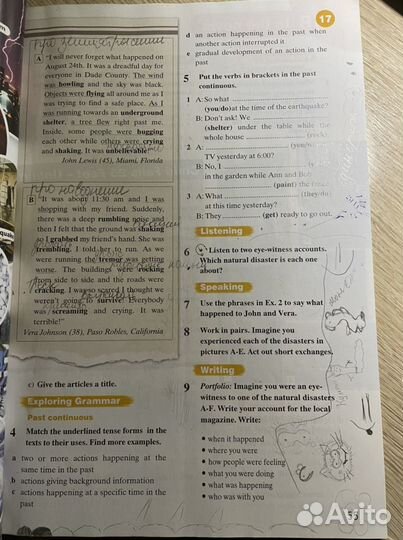 17
при землетрясении
A "I will never forget what happened on
August 24th. It was a dreadful day for
everyone in Dade County. The wind
was howling and the sky was black.
Objects were flying all around me as I
was trying to find a safe place. As I
was running towards an underground
shelter, a tree flew right past me.
Inside, some people were hugging
each other while others were crying
and shaking. It was unbelievable!"
John Lewis (45), Miami, Florida
B "It was about 11:30 am and I was
shopping with my friend. Suddenly,
there was a deep rumbling noise and
then I felt that the ground was shaking
so I grabbed my friend's hand. She was
trembling. I told her to run. As we
were running the tremor was getting
worse. The buildings were rocking
from side to side and the roads were
cracking. I was so scared I thought we
weren't going to survive! Everybody
was screaming and crying. It was
terrible!"
Vera Johnson (38), Paso Robles, California
c) Give the articles a title.
Exploring Grammar
Past continuous
4 Match the underlined tense forms in the
texts to their uses. Find more examples.
a two or more actions happening at the
same time in the past
b actions giving background information
c actions happening at a specific time in the
past
d an action happening in the past when
another action interrupted it
e gradual development of an action in the
past
5 Put the verbs in brackets in the past
continuous.
1 A: So what
(you/do) at the time of the earthquake?
B: Don't ask! We
(shelter) under the table while the
whole house (rock)
2 A:
TV yesterday at 6:00?
B: No, I
in the garden while Ann and Bob
(paint) the fence.
3 A: What (they/do)
at this time yesterday?
B: They (get) ready to go out.
Listening
6 Listen to two eye-witness accounts.
Which natural disaster is each one
about?
Speaking
7 Use the phrases in Ex. 2 to say what
happened to John and Vera.
8 Work in pairs. Imagine you
experienced each of the disasters in
pictures A-E. Act out short exchanges.
Writing
9 Portfolio: Imagine you were an eye-
witness to one of the natural disasters
A-F. Write your account for the local
magazine. Write:
• when it happened
• where you were
• how people were feeling
• what you were doing
• what was happening
• who was with you
55
Avito